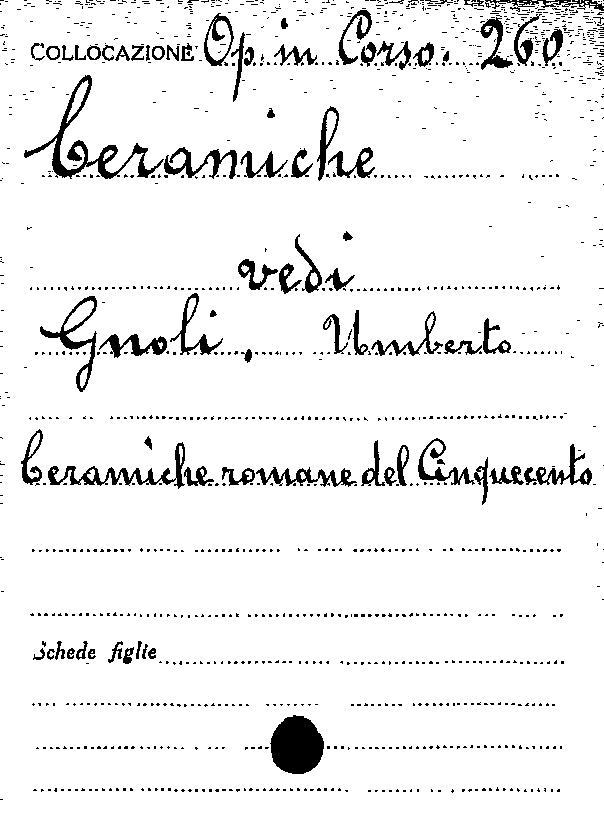 COLLOCAZIONE Op. in Corso. 260
Ceramiche
vedi
Gnoli, Umberto
Ceramiche romane del Cinquecento
Schede figlie